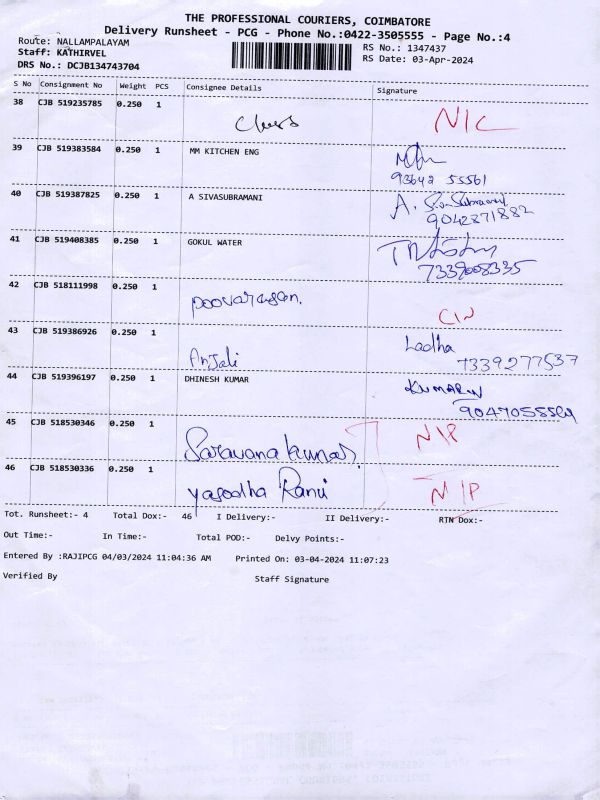 THE PROFESSIONAL COURIERS, COIMBATORE
Delivery Runsheet - PCG - Phone No.:0422-3505555 - Page No.:4
Route: NALLAMPALAYAM RS No.: 1347437
Staff: KATHIRVEL RS Date: 03-Apr-2024
DRS No.: DCJB134743704
S No Consignment No Weight PCS Consignee Details Signature
38 CJB 519235785 0.250 1 N/C
39 CJB 519383584 0.250 1 MM KITCHEN ENG
93642 55561
40 CJB 519387825 0.250 1 A SIVASUBRAMANI A. Sivasubramani
9042871882
41 CJB 519408385 0.250 1 GOKUL WATER
7339008335
42 CJB 518111998 0.250 1 poovarasan. CIN
43 CJB 519386926 0.250 1 Anjali Ladha
7339277537
44 CJB 519396197 0.250 1 DHINESH KUMAR KUMARAN
45 CJB 518530346 0.250 1 Saravana kumar. N/P
46 CJB 518530336 0.250 1 yasodha Rani N/P
Tot. Runsheet:- 4 Total Dox:- 46 I Delivery:- II Delivery:- RTN Dox:-
Out Time:- In Time:- Total POD:- Delvy Points:-
Entered By :RAJIPCG 04/03/2024 11:04:36 AM Printed On: 03-04-2024 11:07:23
Verified By Staff Signature